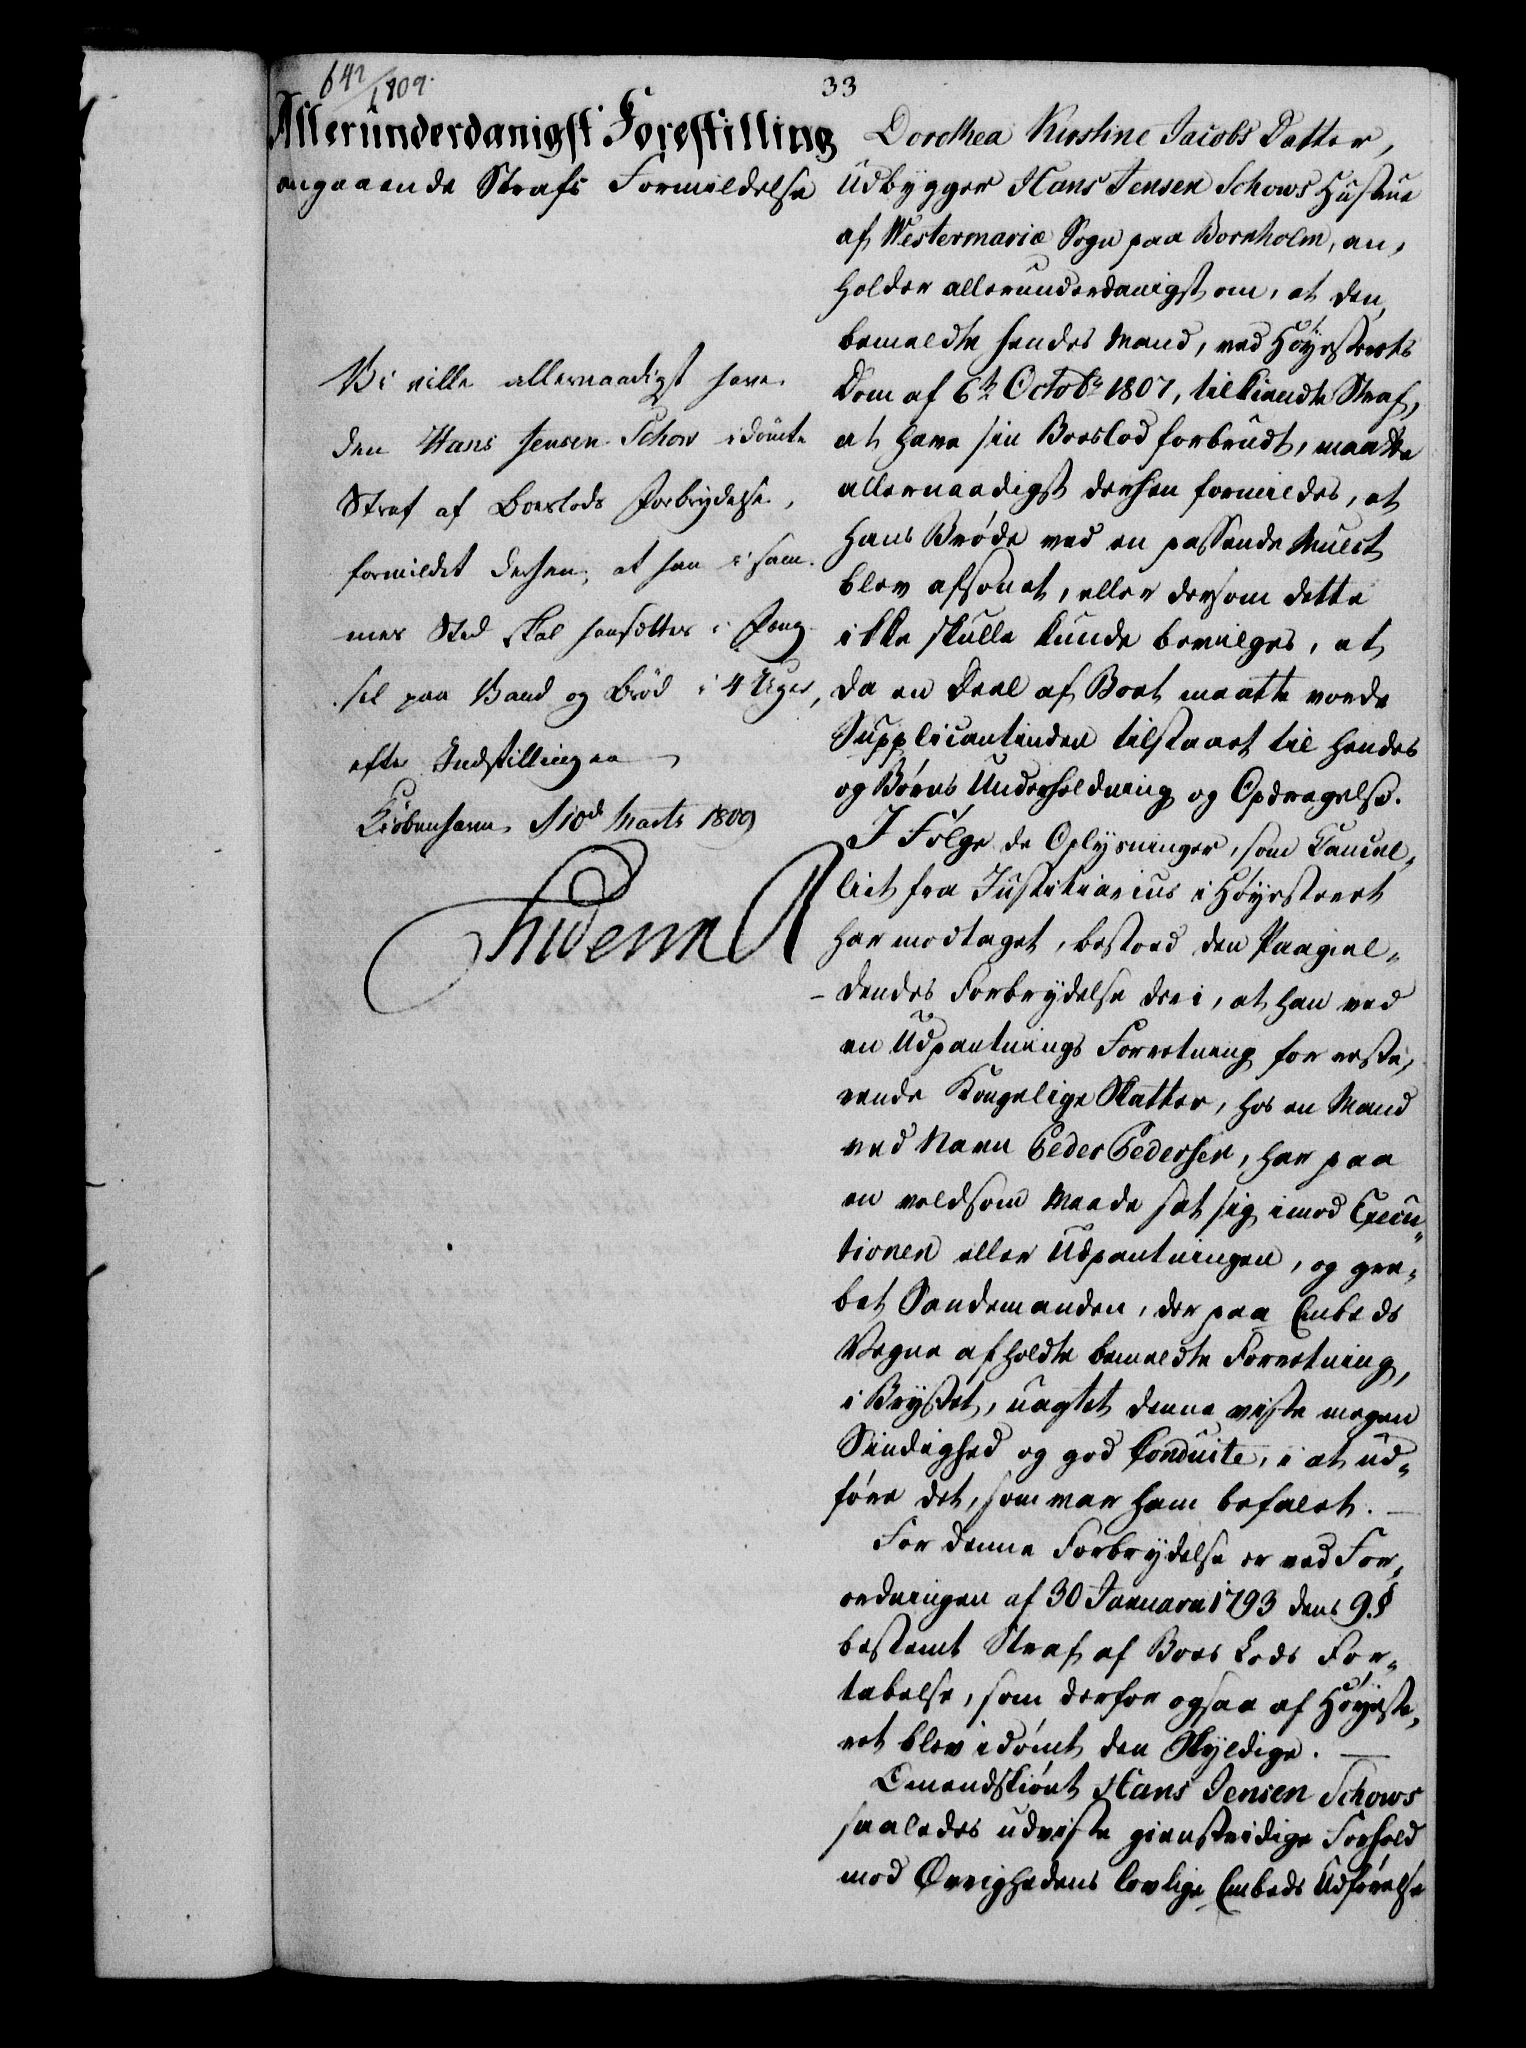 642/1809.
33
Allerunderdanigst Forestilling
angaaende Strafs Formildelse
Vi ville allernaadigst have
den Hans Jensen Schow idømte
Straf af Boeslods Forbrydelse,
formildet derhen, at han i sam-
mes Sted skal hensættes i Fæng-
sel paa Vand og Brød i 4 Uger,
efter Indstillingen
Kiøbenhavn d 10d Marts 1809
Friderich R
Dorothea Kirstine Jacobs Datter,
Udbygger Hans Jensen Schows Hustrue
af Westermariæ Sogn paa Bornholm, an-
holder allerunderdanigst om, at den,
bemeldte hendes Mand, ved Høyesterets
Dom af 6te Octobr 1807, tilkiendte Straf,
at have sin Boeslod forbrudt, maatte
allernaadigst derhen formildes, at
hans Brøde ved en passende Mulct
blev afsonet, eller dersom dette
ikke skulle kunde bevilges, at
da en Deel af Boet maatte vorde
Supplicantinden tilstaaet til hendes
og Børns Underholdning og Opdragelse.
I Følge de Oplysninger, som Cancel-
liet fra Justitiarius i Høyesteret
har modtaget, bestoed den Paagiel-
dendes Forbrydelse deri, at han ved
en Udpantnings Forretning for reste-
rende Kongelige Skatter, hos en Mand
ved Navn Peder Pedersen, har paa
en voldsom Maade sat sig imod Execu-
tionen eller Udpantningen, og gre-
bet Sandemanden, der paa Embeds
Vegne afholdte bemeldte Forretning,
i Brystet, uagtet denne viste megen
Sindighed og god Conduite, i at ud-
føre det, som var ham befalet.
For denne Forbrydelse er ved For-
ordningen af 30 Januarii 1793 dens 9.§
bestemt Straf af Boes Lods For-
tabelse, som derfor ogsaa af Høyeste-
ret blev idømt den Skyldige.
Omendskiønt Hans Jensen Schows
saaledes udviste gienstridige Forhold
mod Øvrighedens lovlige Embeds Udførelse